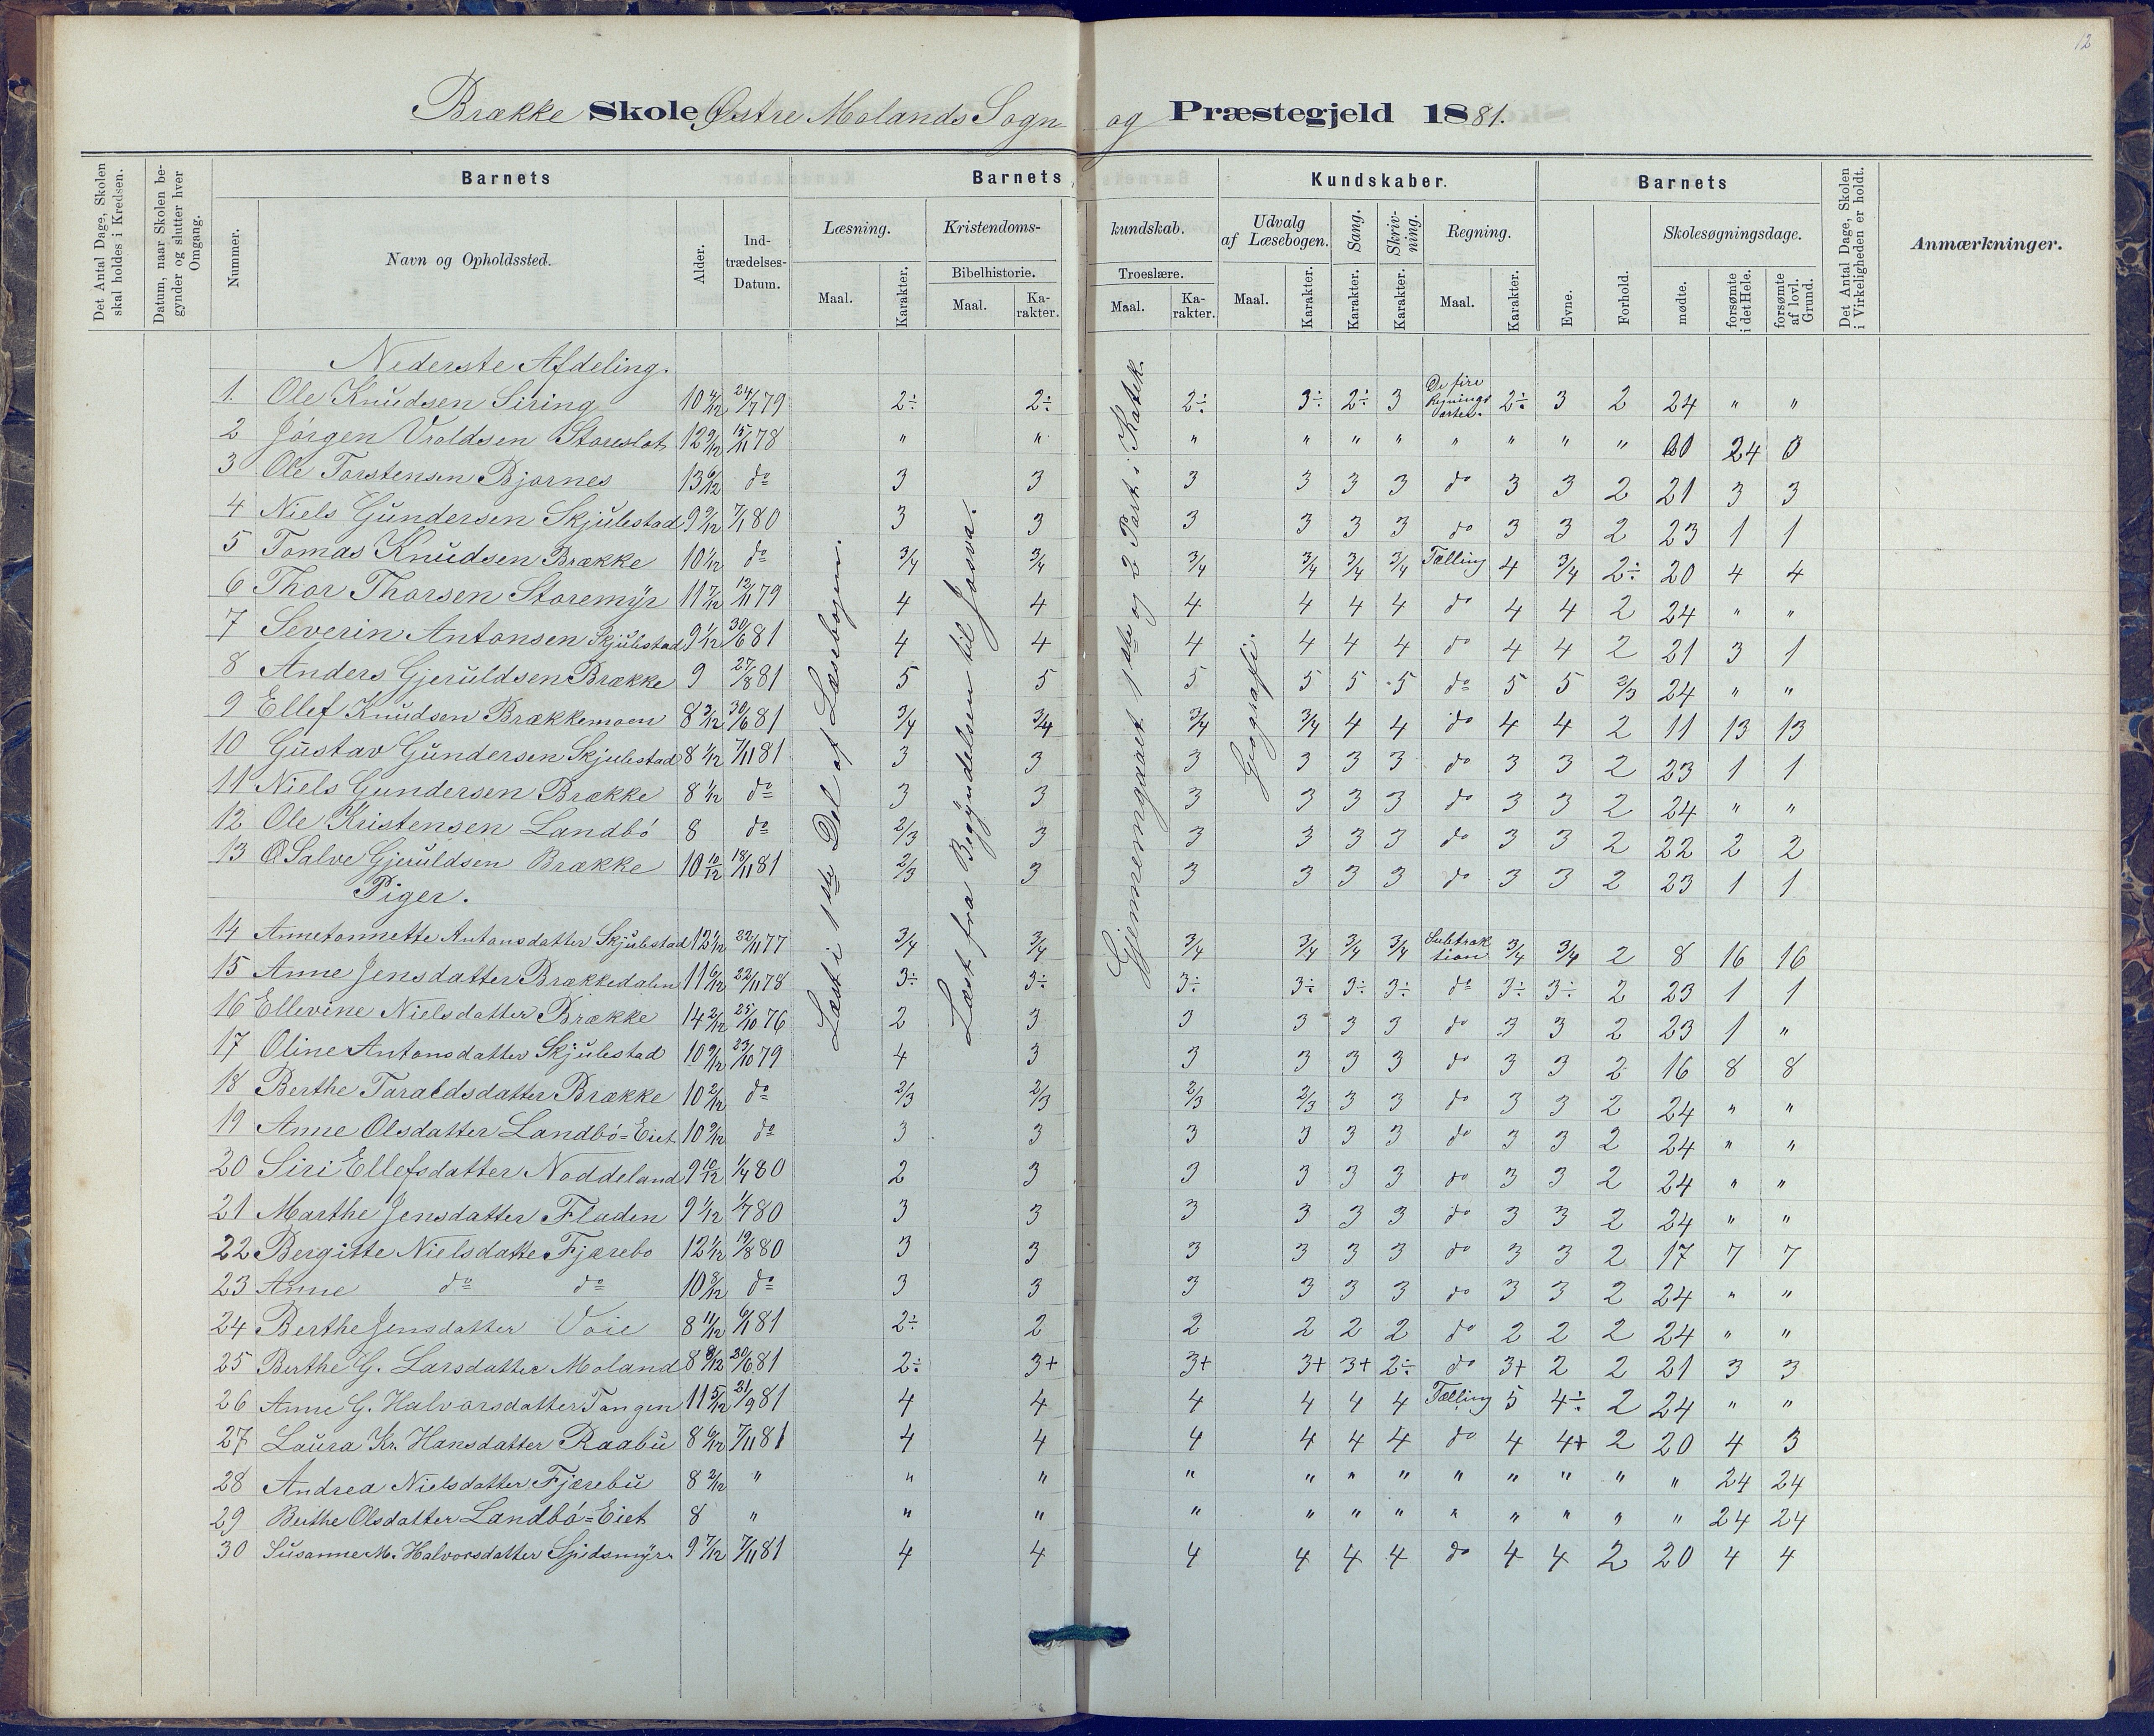 12
Brække Skole Østre Molands Sogn og Præstegjeld 1881.
Det Antal Dage, Skolen skal holdes i Kredsen.
Datum, naar Skolen begynder og slutter hver Omgang.
Barnets
Nummer.
Navn og Opholdssted.
Alder.
Indtrædelses-Datum.
Barnets Kundskaber.
Læsning.
Maal.
Karakter.
Kristendoms-kundskab.
Bibelhistorie.
Maal.
Karakter.
Troeslære.
Maal.
Karakter.
Udvalg af Læsebogen.
Maal.
Karakter.
Sang.
Karakter.
Skrivning.
Karakter.
Regning.
Maal.
Karakter.
Barnets
Evne.
Forhold.
Skolesøgningsdage.
mødte.
forsømte i det Hele.
forsømte af lovl. Grund.
Det Antal Dage, Skolen i Virkeligheden er holdt.
Anmærkninger.
Læst i 1ste Del af Læsebogen.
Læst fra Begyndelsen til Josva.
Gjennemgaaet 1ste og 2 Part i Katek.
Geografi.
Nederste Afdeling.
1. Ole Knudsen Siring 10 4/12 24/7 79 2÷ 2÷ 2÷ 3÷ 2÷ 3 De fire Regningsarter. 2÷ 3 2 24 " "
2 Jörgen Vroldsen Storeslot 12 9/12 15/11 78 " " " " " " " " " " 00 24 0
3 Ole Torstensen Bjornes 13 6/12 do 3 3 3 3 3 3 do 3 3 2 21 3 3
4 Niels Gundersen Skjulestad 9 9/12 7/1 80 3 3 3 3 3 3 do 3 3 2 23 1 1
5 Tomas Knudsen Brække 10 1/12 do 3/4 3/4 3/4 3/4 3/4 3/4 Tælling 4 3/4 2÷ 20 4 4
6 Thor Thorsen Storemyr 11 7/12 12/11 79 4 4 4 4 4 4 do 4 4 2 24 " "
7 Severin Antonsen Skjulestad 9 1/12 30/6 81 4 4 4 4 4 4 do 4 4 2 21 3 1
8 Anders Gjeruldsen Brække 9 27/8 81 5 5 5 5 5 5 do 5 5 2/3 24 " "
9 Ellef Knudsen Brækkemoen 8 3/12 30/6 81 3/4 3/4 3/4 3/4 4 4 do 4 4 2 11 13 13
10 Gustav Gundersen Skjulestad 8 1/12 7/11 81 3 3 3 3 3 3 do 3 3 2 23 1 1
11 Niels Gundersen Brække 8 1/12 do 3 3 3 3 3 3 do 3 3 2 24 " "
12 Ole Kristensen Landbö 8 do 2/3 3 3 3 3 3 do 3 3 2 22 2 2
13 Salve Gjeruldsen Brække 10 10/12 18/11 81 2/3 3 3 3 3 3 do 3 3 2 23 1 1
Piger.
14 Annetonnette Antonsdatter Skjulestad 12 1/12 22/11 77 3/4 3/4 3/4 3/4 3/4 3/4 Subtraktion 3/4 3/4 2 8 16 16
15 Anne Jensdatter Brækkedalen 11 6/12 22/11 78 3÷ 3÷ 3÷ 3÷ 3÷ 3÷ do 3÷ 3÷ 2 23 1 1
16 Ellevine Nielsdatter Brække 14 2/12 25/10 76 2 3 3 3 3 3 do 3 3 2 23 1 "
17 Oline Antonsdatter Skjulestad 10 9/12 23/10 79 4 3 3 3 3 3 do 3 3 2 16 8 8
18 Berthe Taraldsdatter Brække 10 2/12 do 2/3 2/3 2/3 2/3 3 3 do 3 3 2 24 " "
19 Anne Olsdatter Landbö=Eiet 10 9/12 do 3 3 3 3 3 3 do 3 3 2 24 " "
20 Siri Ellefsdatter Noddeland 9 10/12 1/4 80 2 3 3 3 3 3 do 3 3 2 24 " "
21 Marthe Jensdatter Fladen 9 1/12 1/7 80 3 3 3 3 3 3 do 3 3 2 24 " "
22 Bergitte Nielsdatte Fjærebo 12 1/12 19/8 80 3 3 3 3 3 3 do 3 3 2 17 7 7
23 Anne do do 10 8/12 do 3 3 3 3 3 3 do 3 3 2 24 " "
24 Berthe Jensdatter Voie 8 11/12 6/1 81 2÷ 2 2 2 2 2 do 2 2 2 24 " "
25 Berthe G. Larsdatter Moland 8 8/12 30/6 81 2÷ 3+ 3+ 3+ 3+ 2÷ do 3+ 2 2 21 3 3
26 Anne G. Halvorsdatter Tangen 11 5/12 21/9 81 4 4 4 4 4 4 Tælling 5 4÷ 2 24 " "
27 Laura Kr. Hansdatter Raabu 8 6/12 7/11 81 4 4 4 4 4 4 do 4 4+ 2 20 4 3
28 Andrea Nielsdatter Fjærebu 8 2/12 " " " " " " " " " " " " 24 24
29 Berthe Olsdatter Landbö=Eiet 8 " " " " " " " " " " " " 24 24
30 Susanne M. Halvorsdatter Spidsmyr 9 7/12 7/11 81 4 4 4 4 4 4 do 4 4 2 20 4 4